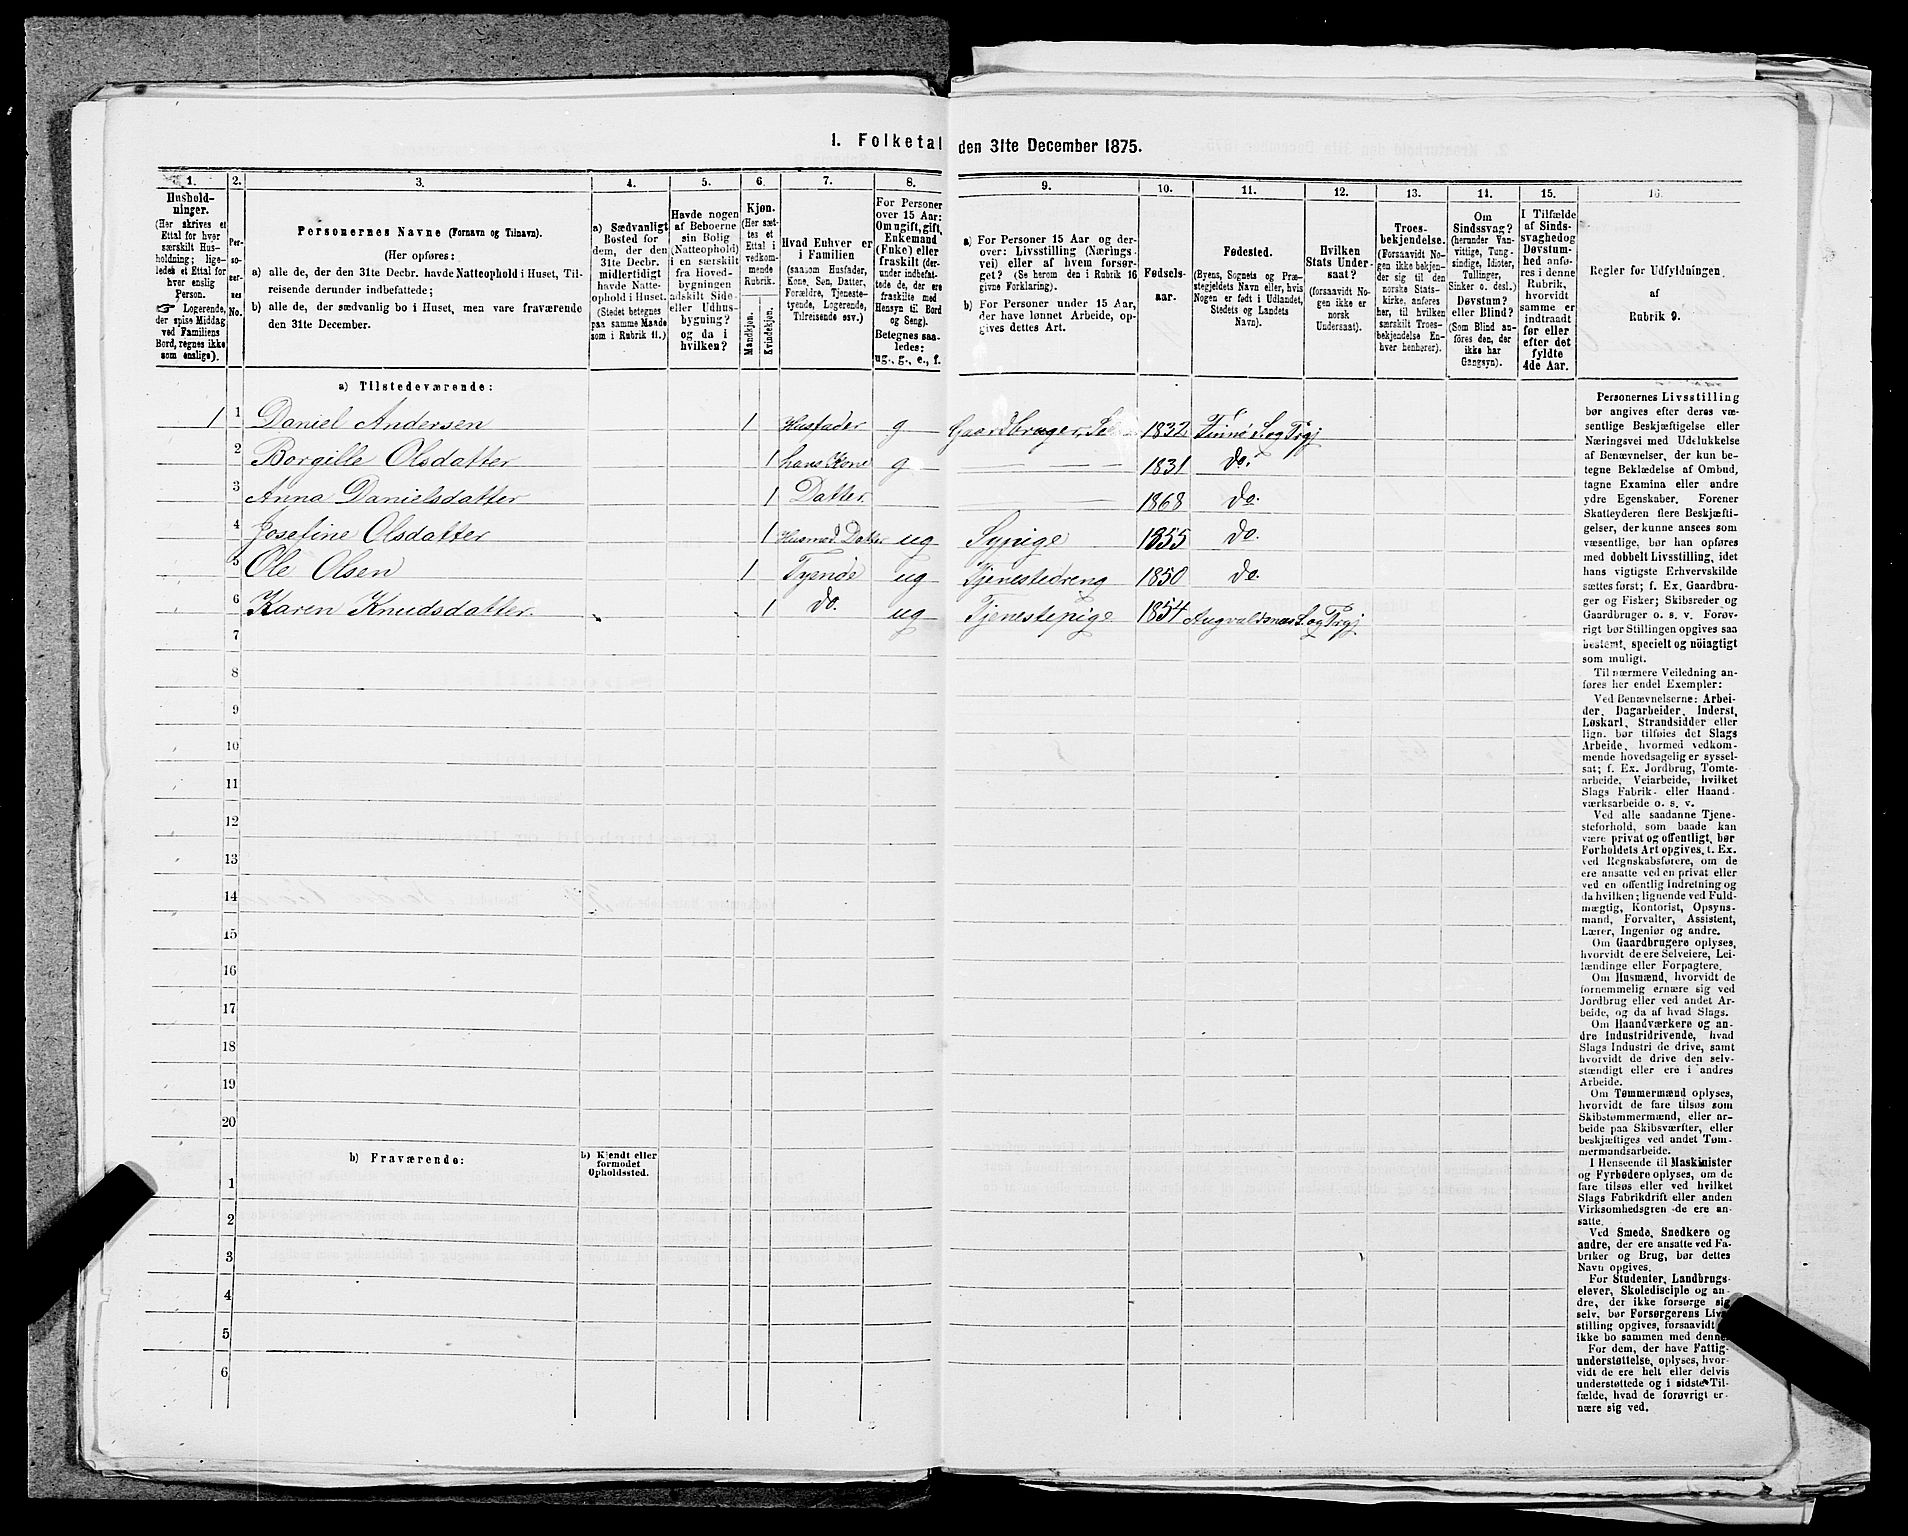 1. Folketal den 31te December 1875.
1. 2. 3. 4. 5. 6. 7. 8. 9. 10. 11. 12. 13. 14. 15. 16.
Hushold-
ninger.
(Her skrives et
Ettal for hver
særskilt Hus-
holdning; lige-
ledes et Ettal for
hver enslig
Person.
☞ Logerende,
der spise Middag
ved Familiens
Bord, regnes ikke
som enslige).
Per-
soner-
nes
No.
Personernes Navne (Fornavn og Tilnavn).
(Her opføres:
a) alle de, der den 31te Decbr. havde Natteophold i Huset, Til-
reisende derunder indbefattede;
b) alle de, der sædvanlig bo i Huset, men vare fraværende
den 31te December.
a) Sædvanligt
Bosted for
dem, der den
31te Decbr.
midlertidigt
havde Natte-
ophold i Huset.
(Stedet betegnes
paa samme Maade
som i Rubrik 11.)
Havde nogen
af Beboerne
sin Bolig
(Natteophold)
i en særskilt
fra Hoved-
bygningen
adskilt Side-
eller Udhus-
bygning?
og da i
hvilken?
Kjøn.
(Her sæt-
tes et
Ettal i
vedkom-
mende
Rubrik.
Mandkjøn.
Kvindekjøn.
Hvad Enhver er
i Familien
(saasom Husfader,
Kone, Søn, Datter,
Forældre, Tjeneste-
tyende, Logerende,
Tilreisende osv.)
For Personer
over 15 Aar:
Om ugift, gift,
Enkemand
(Enke) eller
fraskilt (der-
under indbefat-
tede de, der ere
fraskilte med
Hensyn til Bord
og Seng).
Betegnes saa-
ledes:
ug., g., e., f.
a) For Personer 15 Aar og der-
over: Livsstilling (Nærings-
vei) eller af hvem forsør-
get? (Se herom den i Rubrik 16
givne Forklaring).
b) For Personer under 15 Aar,
der have lønnet Arbeide, op-
gives dettes Art.
Fødsels-
aar.
Fødested.
(Byens, Sognets og Præ-
stegjeldets Navn eller, hvis
Nogen er født i Udlandet,
Stedets og Landets
Navn).
Hvilken
Stats Under-
saat?
(forsaavidt No-
gen ikke er
norsk
Undersaat).
Troes-
bekjendelse.
(Forsaavidt No-
gen ikke bekjen-
der sig til den
norske Stats-
kirke, anføres
her, til hvilken
særskilt Troes-
bekjendelse En-
hver henhører).
Om
Sindssvag?
(herunder Van-
vittige, Tung-
sindige, Idioter,
Tullinger,
Sinker o. desl.)
Døvstum?
eller Blind?
(Som Blind an-
føres den, der
ikke har
Gangsyn).
I Tilfælde
af Sinds-
svaghed og
Døvstum-
hed anfø-
res i denne
Rubrik,
hvorvidt
samme er
indtraadt
før eller
efter det
fyldte
4de Aar.
Regler for Udfyldningen
af
Rubrik 9.
a) Tilstedeværende:
1 1 Daniel Andersen 1 Husfader g Gaardbruger, 1832 Finnø S. og Prgj
2 Borgille Olsdatter 1 hans Kone g — — 1831 do.
3 Anna Danielsdatter 1 Datter 1868 do.
4 Josefine Olsdatter 1 Datter ug Sypige 1855 do.
5 Ole Olsen 1 Tyende ug Tjenestedreng 1850 do.
6 Karen Knudsdatter. 1 do. ug Tjenestepige 1854 Augvaldsnæs S. og Prgj
7
8
9
10
11
12
13
14
15
16
17
18
19
20
b) Fraværende:
b) Kjendt eller
formodet
Opholdssted.
1
2
3
4
5
6
Personernes Livsstilling
bør angives efter deres væ-
sentlige Beskjæftigelse eller
Næringsvei med Udelukkelse
af Benævnelser, der kun be-
tegne Beklædelse af Ombud,
tagne Examina eller andre
ydre Egenskaber. Forener
Skatteyderen flere Beskjæfti-
gelser, der kunne ansees som
væsentlige, bør han opføres
med dobbelt Livsstilling, idet
hans vigtigste Erhvervskilde
sættes først; f. Ex. Gaardbru-
ger og Fisker; Skibsreder og
Gaardbruger o. s. v. Forøv-
rigt bør Stillingen opgives saa
bestemt, specielt og nöiagtigt
som muligt.
Til nærmere Veiledning an-
føres her endel Exempler:
Ved Benævnelserne: Arbei-
der, Dagarbeider, Inderst,
Løskarl, Strandsidder eller
lign. bør tilføies det Slags
Arbeide, hvormed vedkom-
mende hovedsagelig er syssel-
sat; f. Ex. Jordbrug, Tomte-
arbeide, Veiarbeide, hvilket
Slags Fabrik- eller Haand-
værksarbeide o. s. v.
Ved alle saadanne Tjene-
steforhold, som baade kan
være privat og offentligt, bør
Forholdets Art opgives, t. Ex.
ved Regnskabsførere, om de
ere ansatte ved en privat eller
ved en offentlig Indretning og
da hvilken; lignende ved Fuld-
mægtig, Kontorist, Opsyns-
mand, Forvalter, Assistent,
Lærer, Ingeniør og andre.
Om Gaardbrugere oplyses,
hvorvidt de ere Selveiere, Lei-
lændinge eller Forpagtere.
Om Husmænd, hvorvidt de
fornemmelig ernære sig ved
Jordbrug eller ved andet Ar-
beide, og da af hvad Slags.
Om Haandværkere og an-
dre Industridrivende, hvad
Slags Industri de drive, samt
hvorvidt de drive den selv-
stændigt eller ere i andres
Arbeide.
Om Tømmermænd oplyses,
hvorvidt de fare tilsøs som
Skibstømmermænd, eller ar-
beide paa Skibsværfter, eller
beskjæftiges ved andet Tøm-
mermandsarbeide.
I Henseende til Maskinister
og Fyrbødere oplyses, om de
fare tilsøs eller ved hvilket
Slags Fabrikdrift eller anden
Virksomhedsgren de ere an-
satte.
Ved Smede, Snedkere og
andre, der ere ansatte ved Fa-
briker og Brug, bør dettes
Navn opgives.
For Studenter, Landbrugs-
elever, Skoledisciple og an-
dre, der ikke forsørge sig
selv, bør Forsørgerens Livs-
stilling opgives, forsaavidt
ikke bo sammen med denne.
For dem, der have Fattig-
understøttelse, oplyses, hvor-
vidt de ere helt eller delvis
understøttede og i sidste Til-
fælde, hvad de forøvrigt er-
nære sig ved.